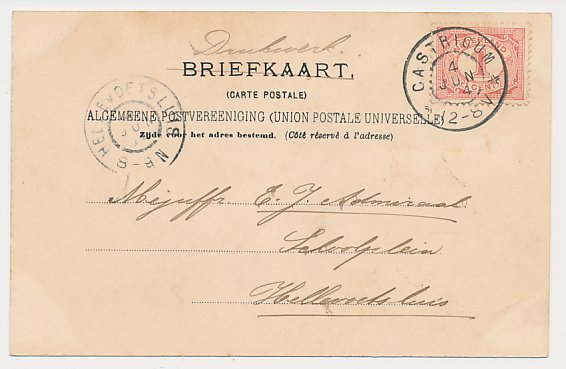 Drukwerk.
BRIEFKAART.
(CARTE POSTALE)
ALGEMEENE POSTVEREENIGING (UNION POSTALE UNIVERSELLE)
Zijde voor het adres bestemd. (Côté réservé à l'adresse)
CASTRICUM
4
JUN
12-8V
1
CENT
HELLEVOETSLUIS
JUN
N 5-8
Mejuffr. E. J. Admiraal
Schoolplein
Hellevoetsluis